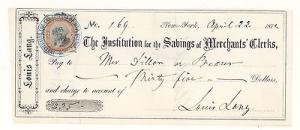 Louis Long.
No. 169. New-York, April 22 1872
The Institution for the Savings of Merchants' Clerks,
Pay to Mr Dillon or Bearer
Thirty five Dollars,
and charge to account of
$35. Louis Long